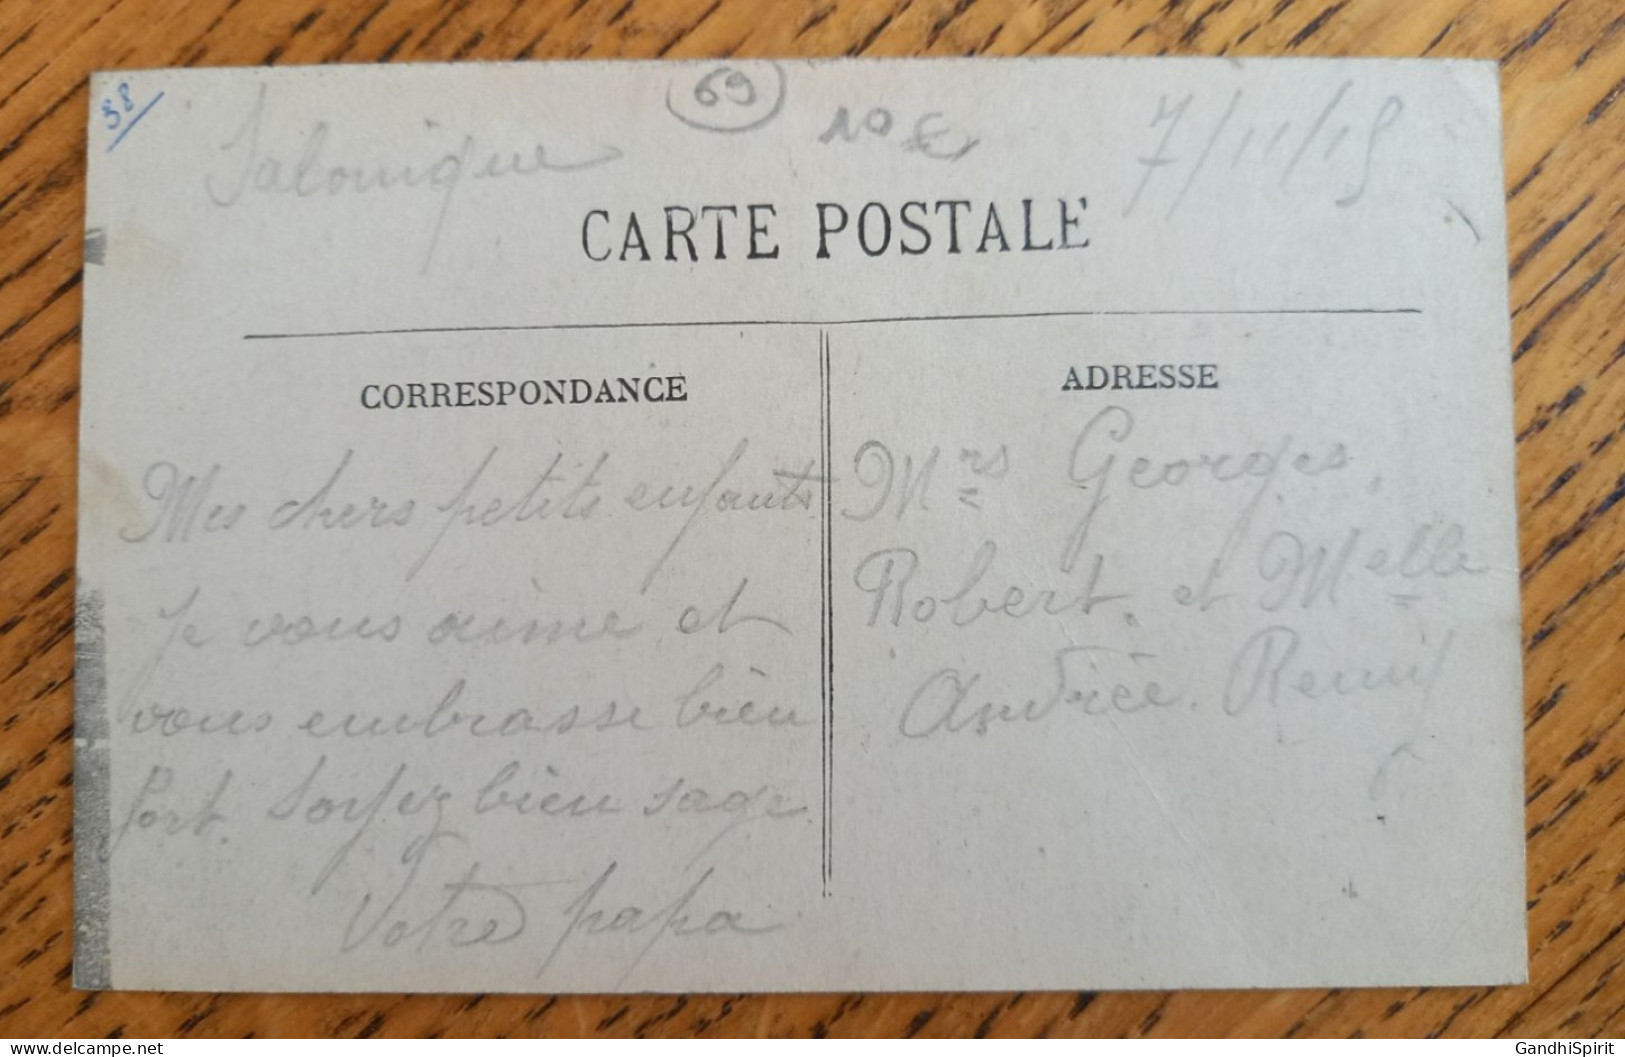 58
Salonique
69
10 €
7/11/15
CARTE POSTALE
CORRESPONDANCE
Mes chers petits enfants
Je vous aime et
vous embrasse bien
fort. Soyez bien sage
Votre papa
ADRESSE
Mrs Georges,
Robert. et Melle
Andrée. Remy
www.delcampe.net
GandhiSpirit